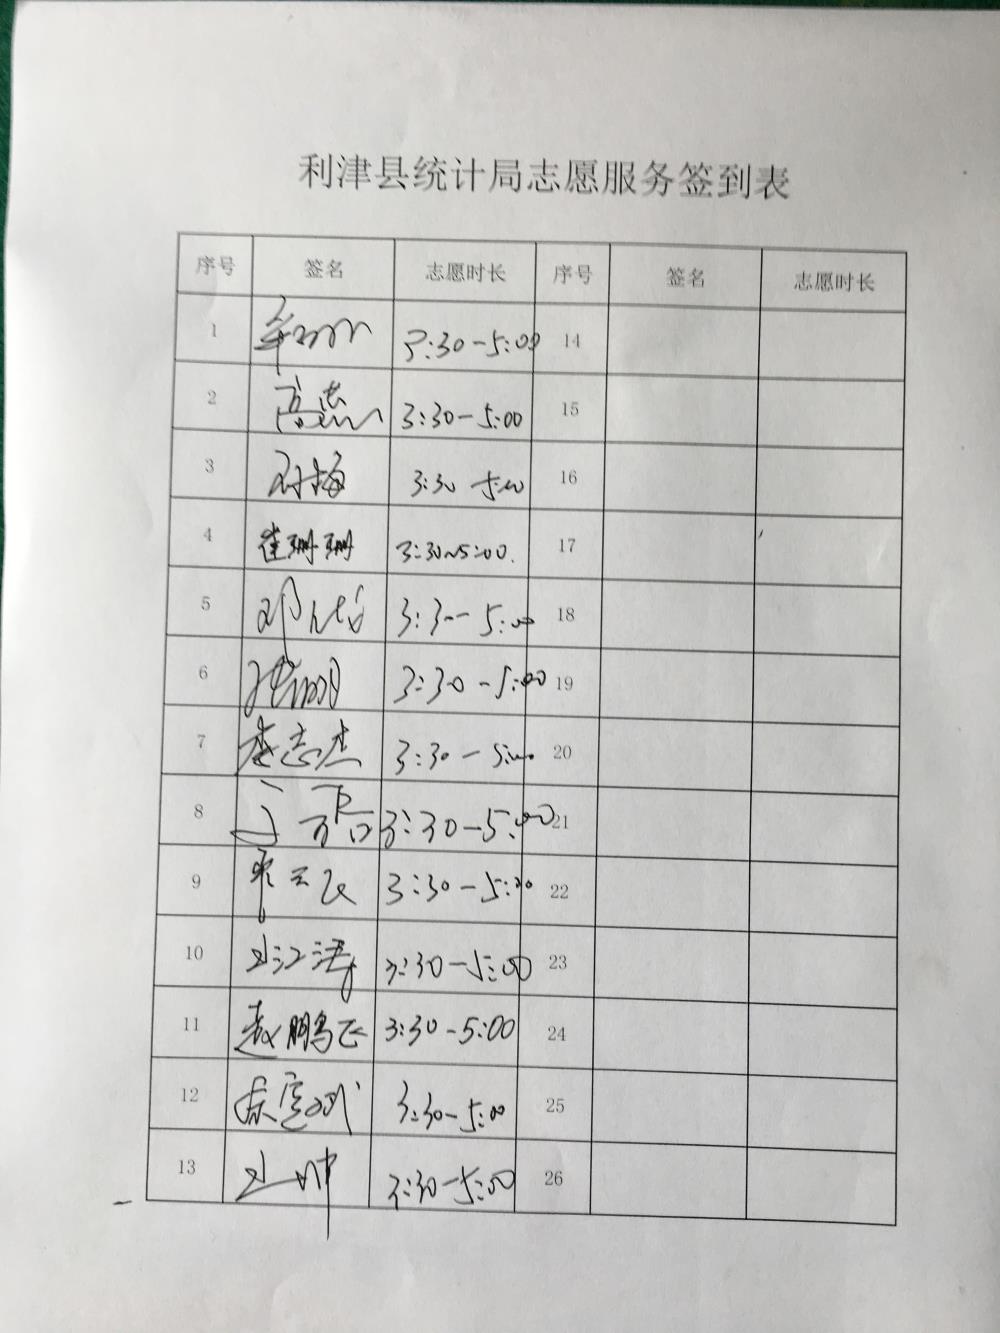 利津县统计局志愿服务签到表
序号 签名 志愿时长 序号 签名 志愿时长
1 3:30-5:00 14
2 高志 3:30-5:00 15
3 3:30 5:00 16
4 崔珊珊 3:30~5:00. 17
5 3:30-5:00 18
6 3:30-5:00 19
7 李志杰 3:30-5:00 20
8 3:30-5:00 21
9 3:30-5:00 22
10 王江涛 3:30-5:00 23
11 赵鹏飞 3:30-5:00 24
12 3:30-5:00 25
13 王坤 3:30-5:00 26